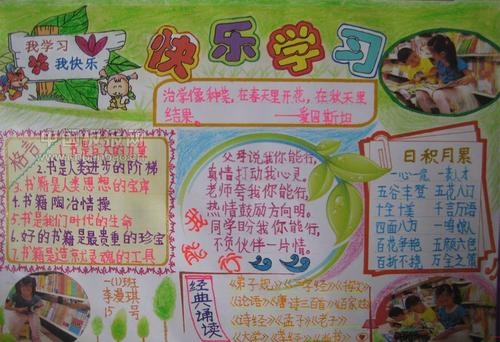 我学习
我快乐
快乐学习
治学像种菜，在春天里开花，在秋天里
结果。 ——爱因斯坦
格言
2.书是人类进步的阶梯
3.书籍是人类思想的宝库
4.书籍陶冶情操
5.书是我们时代的生命
6.好的书籍是最贵重的珍宝
7.书籍是造就灵魂的工具
父母说我你能行，
真情打动我心灵。
老师夸我你能行，
热情鼓励方向明。
同学盼我你能行，
不负伙伴一片情。
我能行
日积月累
一心一意 一表人才
五谷丰登 五花八门
十全十美 千言万语
四面八方 一鸣惊人
百花争艳 五颜六色
百折不挠 万全之策
一(1)班
李漫琪
15号
经典诵读
《弟子规》《三字经》
《论语》《唐诗三百首》《百家姓》
《诗经》《孟子》《老子》